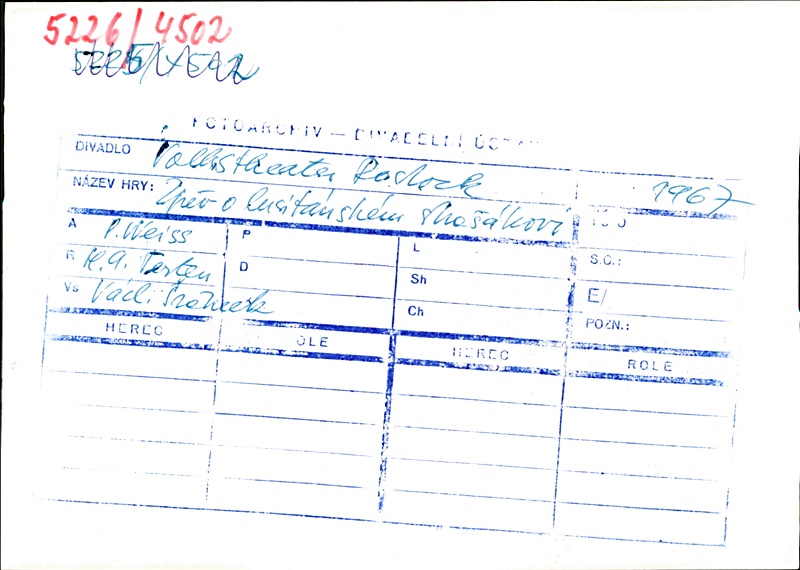 5226/4502
FOTOARCHIV — DIVADELNÍ ÚSTAV
DIVADLO Volkstheater Rostock
1967
NÁZEV HRY: Zpěv o lusitánském strašákovi
A P. Weiss
P
L
S.O.:
R H. A. Perten
D
Sh
E/
Vs Václ.
Ch
POZN.:
HEREC
ROLE
HEREC
ROLE